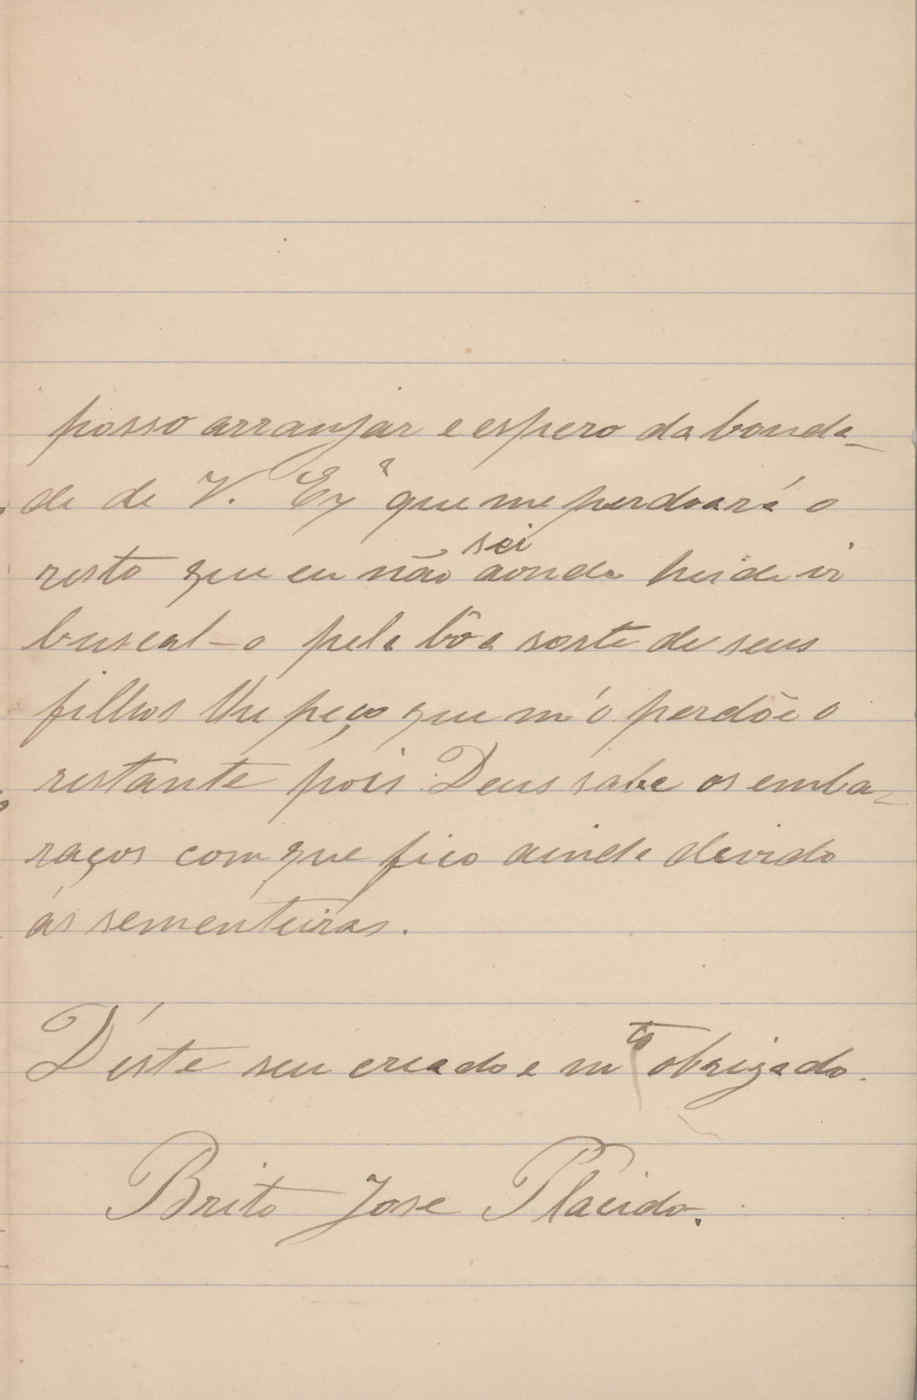 posso arranjar e espero da bonda-
de de V. Exª que me perdoará o
resto que eu não sei aonde heide ir
buscal-o pela bôa sorte de seus
filhos lhe peço que m'o perdõe o
restante pois Deus sabe os emba-
raços com que fico ainda devido
ás sementeiras.
D'éste seu creado e mto obrigado.
Brito José Placido.